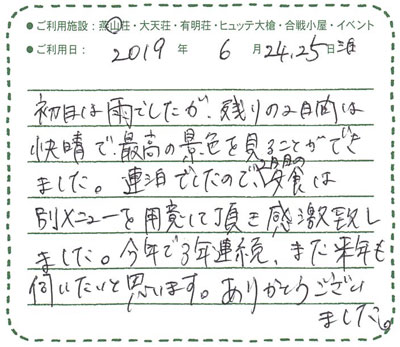 ●ご利用施設：燕山荘・大天荘・有明荘・ヒュッテ大槍・合戦小屋・イベント
●ご利用日：2019年 6月24,25日
初日は雨でしたが、残りの2日間は
快晴で、最高の景色を見ることができ
ました。連泊でしたので、2日目の夕食は
別メニューを用意して頂き感激致し
ました。今年で3年連続、また来年も
伺いたいと思います。ありがとうござい
ました。